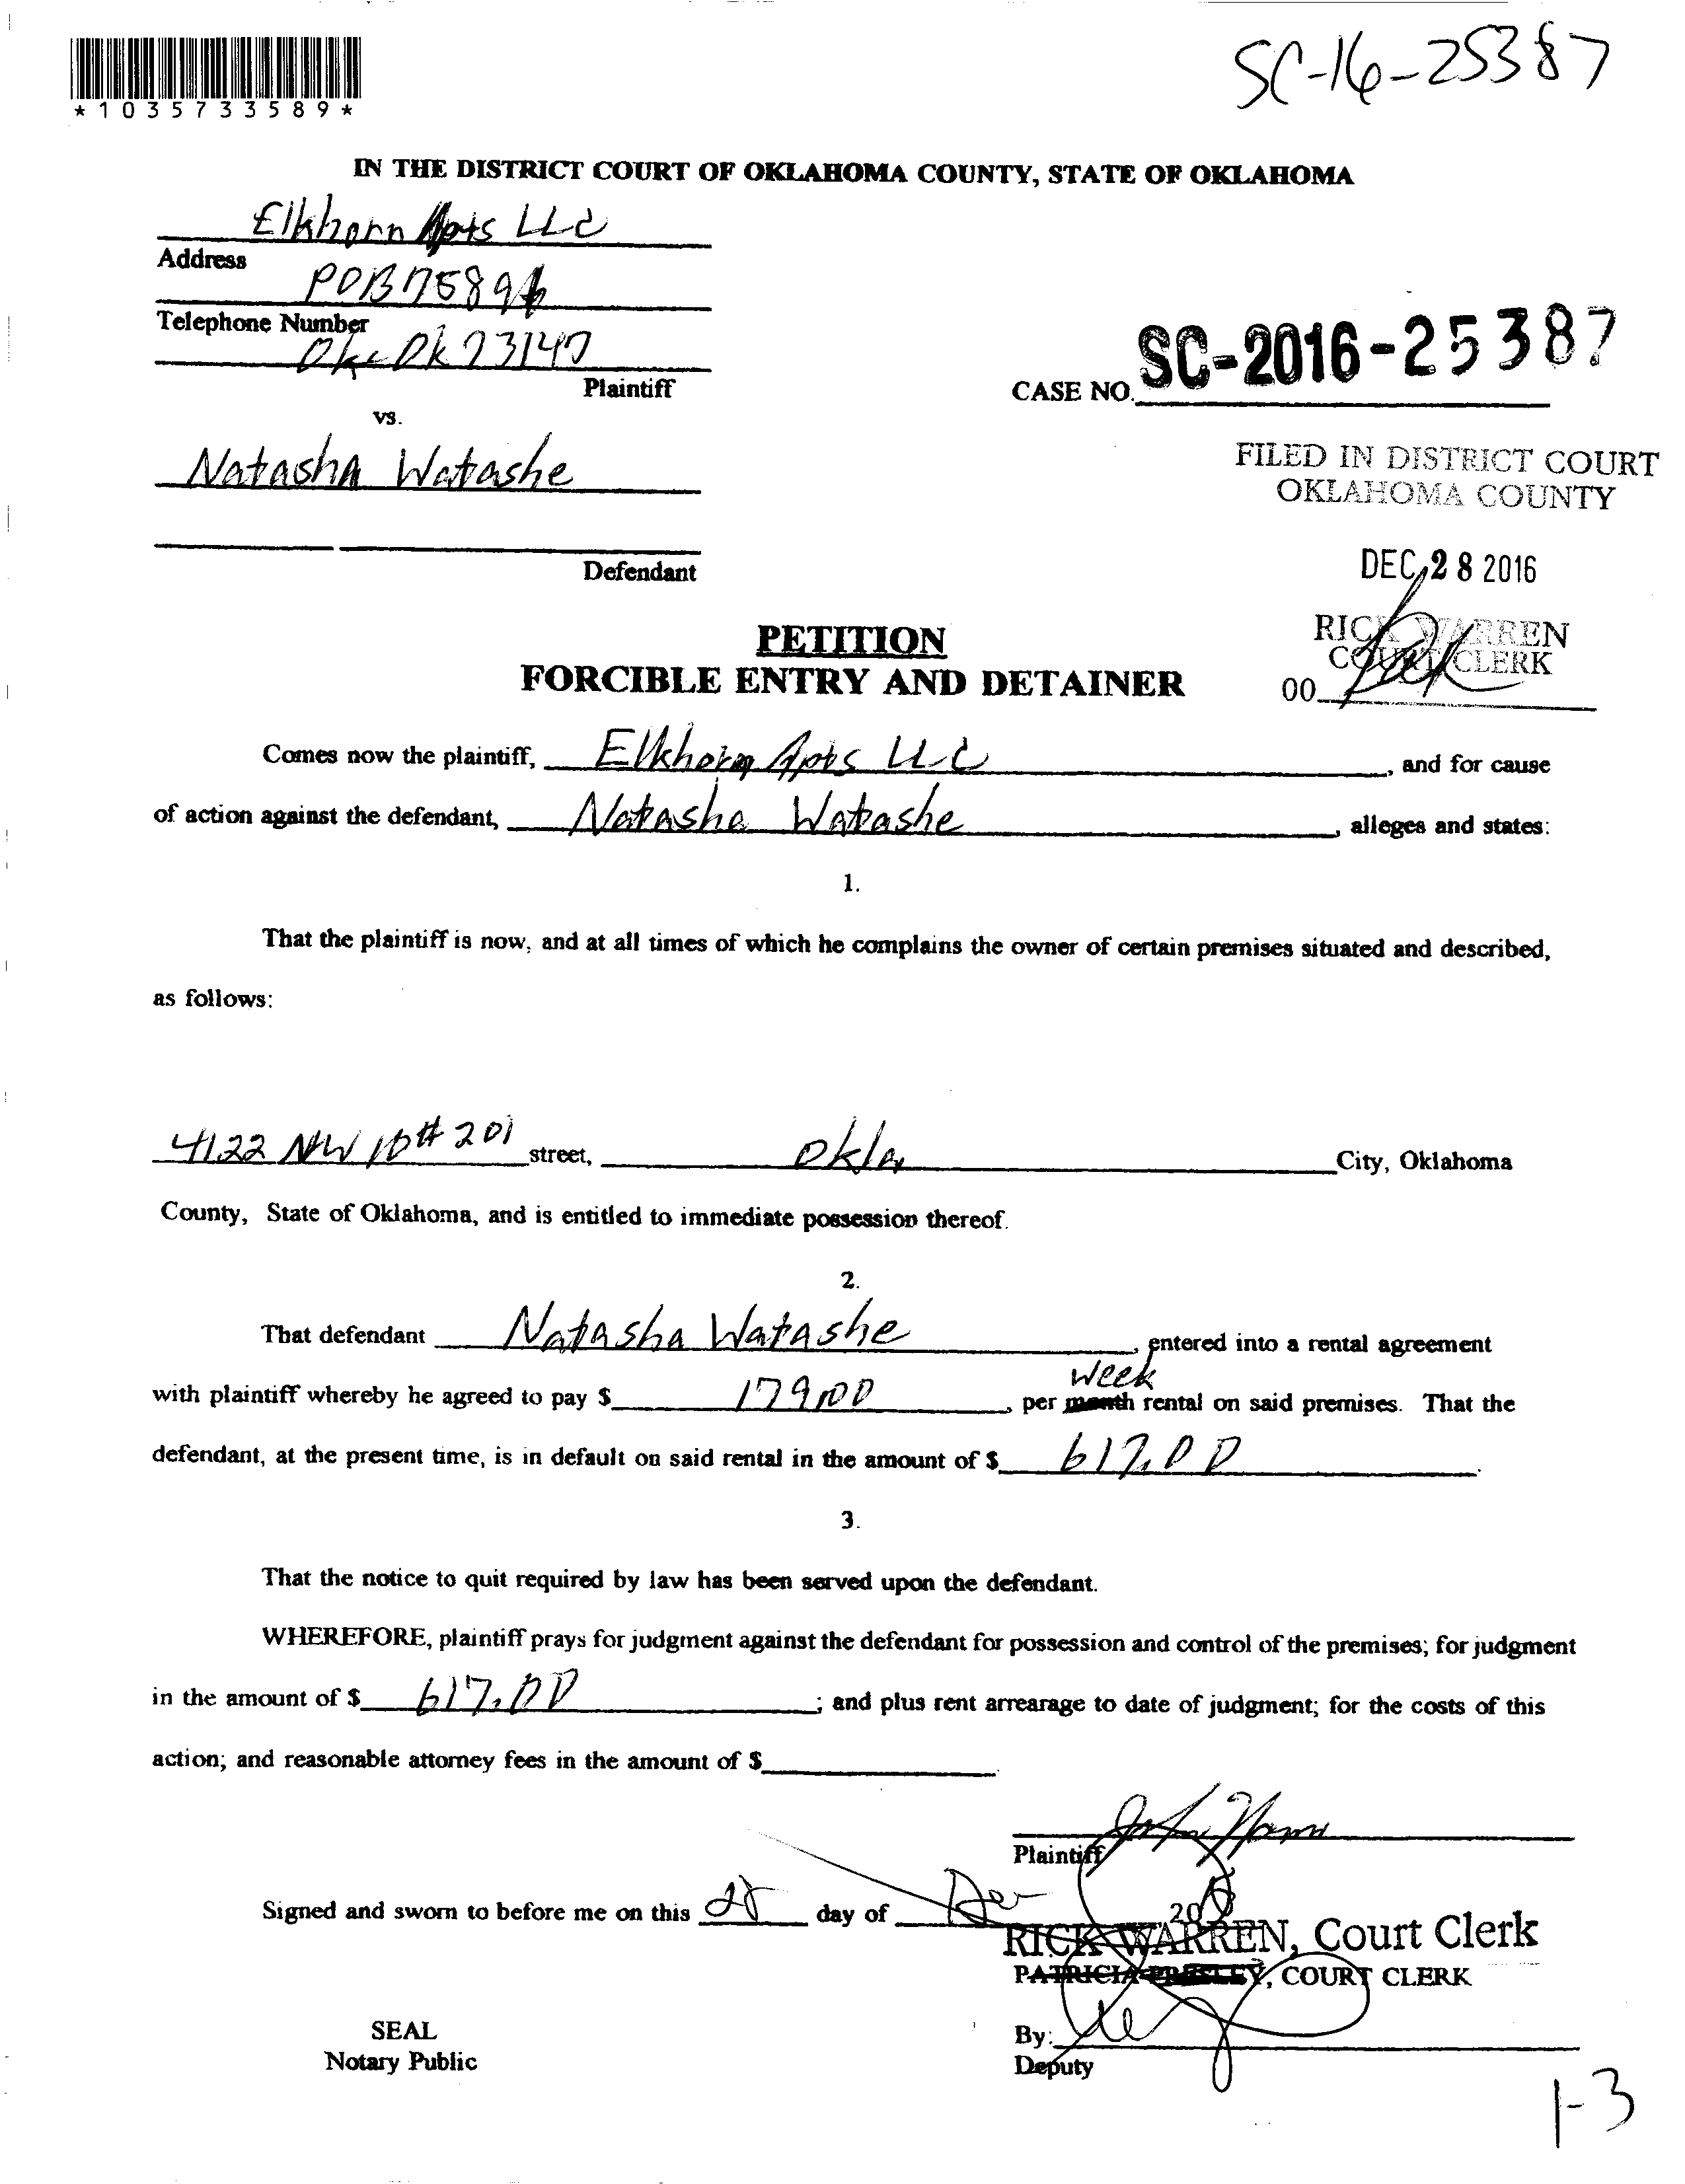 SC-16-25387
*1035733589*
IN THE DISTRICT COURT OF OKLAHOMA COUNTY, STATE OF OKLAHOMA
Elkhorn Apts LLC
Address
POB 75896
Telephone Number
Okc Ok 73147
Plaintiff
CASE NO. SC-2016-25387
vs.
Natasha Watashe
FILED IN DISTRICT COURT
OKLAHOMA COUNTY
Defendant
DEC 28 2016
RICK WARREN
COURT CLERK
00
PETITION
FORCIBLE ENTRY AND DETAINER
Comes now the plaintiff, Elkhorn Apts LLC, and for cause
of action against the defendant, Natasha Watashe, alleges and states:
1.
That the plaintiff is now, and at all times of which he complains the owner of certain premises situated and described,
as follows:
4122 NW 10 # 201 street, Okla City, Oklahoma
County, State of Oklahoma, and is entitled to immediate possession thereof.
2.
That defendant Natasha Watashe, entered into a rental agreement
week
with plaintiff whereby he agreed to pay $ 179.00, per month rental on said premises. That the
defendant, at the present time, is in default on said rental in the amount of $ 617.00.
3.
That the notice to quit required by law has been served upon the defendant.
WHEREFORE, plaintiff prays for judgment against the defendant for possession and control of the premises; for judgment
in the amount of $ 617.00; and plus rent arrearage to date of judgment; for the costs of this
action; and reasonable attorney fees in the amount of $
Plaintiff
Signed and sworn to before me on this 28 day of Dec 20
RICK WARREN, Court Clerk
PATRICIA PRESLEY, COURT CLERK
SEAL
Notary Public
By:
Deputy
1-3